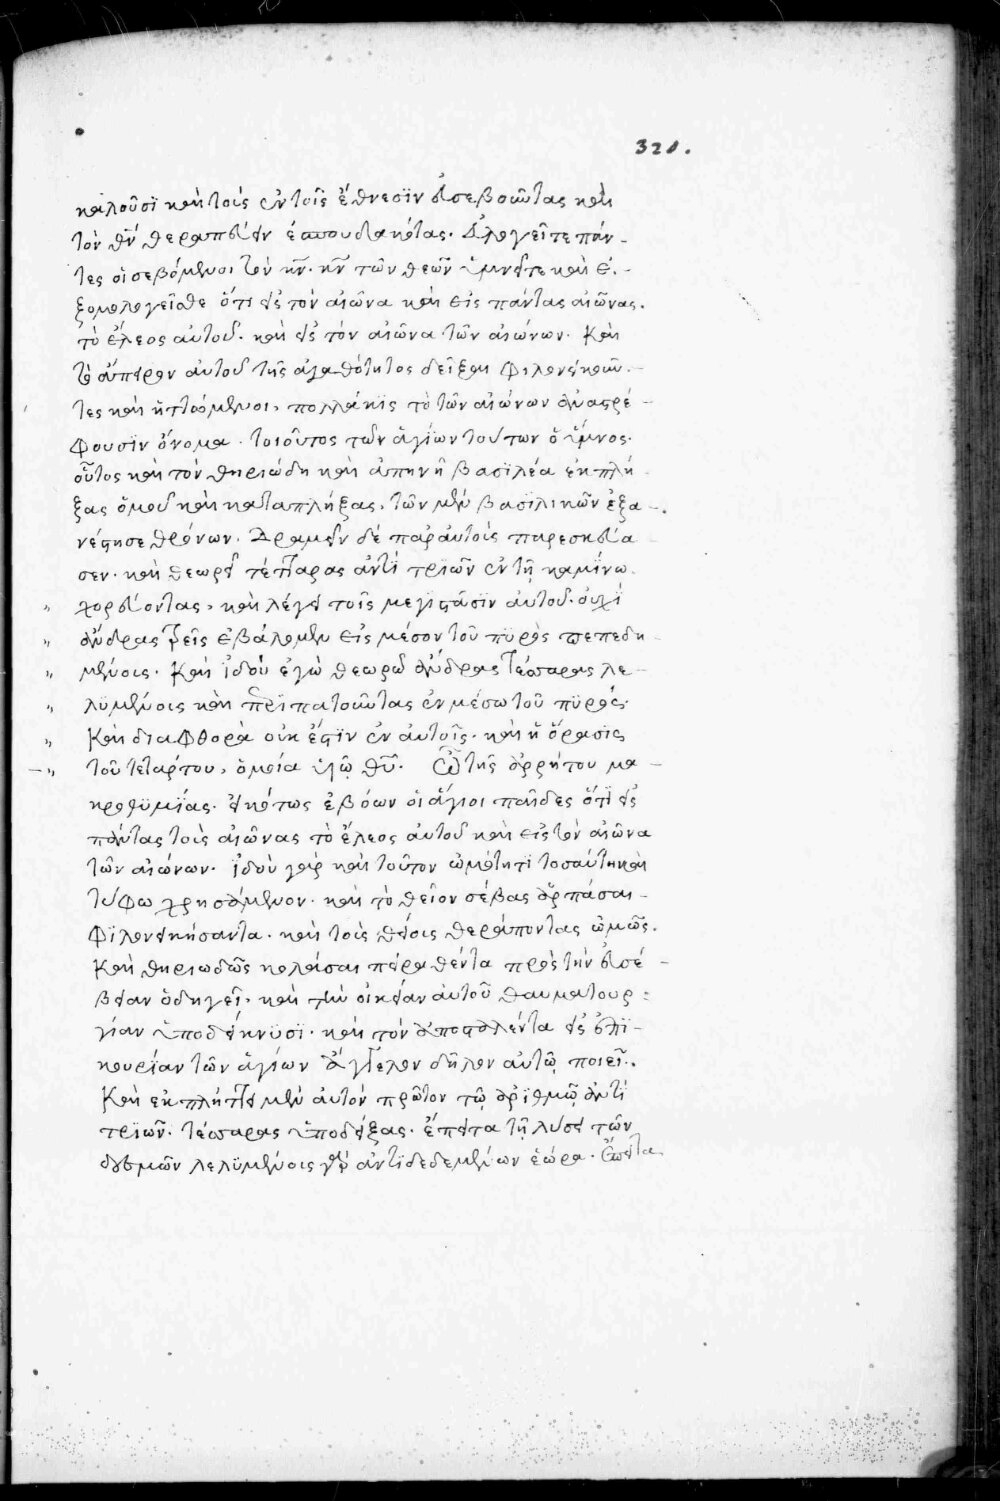 321.
καλοῦσϊ καὶ τοὺς ἐν τοῖς ἔθνεσϊν εὐσεβοῦντας καὶ
τὸν θν̄ θεραπεύειν ἐσπουδακότας. Εὐλογεῖτε πάν-
τες οἱ σεβόμενοι τὸν κν̄. κν̄ τῶν θεῶν ὑμνεῖτε καὶ ἐ-
ξομολογεῖσθε ὅτι εἰς τὸν αἰῶνα καὶ εἰς πάντας αἰῶνας.
τὸ ἔλεος αὐτοῦ. καὶ εἰς τὸν αἰῶνα τῶν αἰώνων. Καὶ
τὸ ἄπειρον αὐτοῦ τῆς ἀγαθότητος δεῖξαι φιλονεικοῦν-
τες καὶ ἡττώμενοι, πολλάκϊς τὸ τῶν αἰώνων ἀναστρέ-
φουσϊν ὄνομα. τοιοῦτος τῶν ἁγίων τούτων ὁ ὕμνος.
οὗτος καὶ τὸν θηριώδη καὶ ἀπηνῆ βασϊλέα ἐκπλή-
ξας ὁμοῦ καὶ καταπλήξας, τῶν μὲν βασϊλικῶν ἐξα-
νέστησε θρόνων. Δραμεῖν δὲ παρ' αὐτοὺς παρεσκεύα
σεν. καὶ θεωρεῖ τέτταρας ἀντὶ τριῶν ἐν τῇ καμίνω
" χορεύοντας, καὶ λέγει τοῖς μεγιστᾶσϊν αὐτοῦ. οὐχὶ
" ἄνδρας τρεῖς ἐβάλομεν εἰς μέσον τοῦ πϋρὸς πεπεδη
" μένους. Καὶ ἰδοὺ ἐγὼ θεωρῶ ἄνδρας τέσσαρας λε-
" λϋμένους καὶ περϊπατοῦντας ἐν μέσω τοῦ πϋρός.
" Καὶ διαφθορὰ οὐκ ἔστϊν ἐν αὐτοῖς. καὶ ἡ ὅρασϊς
" τοῦ τετάρτου, ὁμοία υἱῷ θῦ. Ὢ τῆς ἀρρήτου μα-
κροθϋμίας. εἰκότως ἐβόων οἱ ἅγιοι παῖδες ὅτϊ εἰς
πάντας τοὺς αἰῶνας τὸ ἔλεος αὐτοῦ καὶ εἰς τὸν αἰῶνα
τῶν αἰώνων. ἰδοὺ γὰρ καὶ τοῦτον ὠμότητϊ τοσαύτη καὶ
τύφω χρησάμενον. καὶ τὸ θεῖον σέβας ἁρπάσαι
φϊλονεικήσαντα. καὶ τοὺς θείους θεράποντας ὠμῶς.
Καὶ θηριωδῶς κολάσαι πειραθέντα πρὸς τὴν εὐσέ-
βειαν ὁδηγεῖ. καὶ τὴν οἰκείαν αὐτοῦ θαυματουρ-
γίαν ὑποδείκνϋσϊ. καὶ τὸν ἀποσταλέντα εἰς ἐπϊ-
κουρίαν τῶν ἁγίων ἄγγελον δῆλον αὐτῷ ποιεῖ.
Καὶ ἐκπλήττει μὲν αὐτὸν πρῶτον τῷ ἀρϊθμῷ ἀντὶ
τριῶν. τέσσαρας ὑποδείξας. ἔπειτα τῇ λύσει τῶν
δεσμῶν λελϋμένους γὰρ ἀντϊ δεδεμένων ἑώρα. Ὥστε